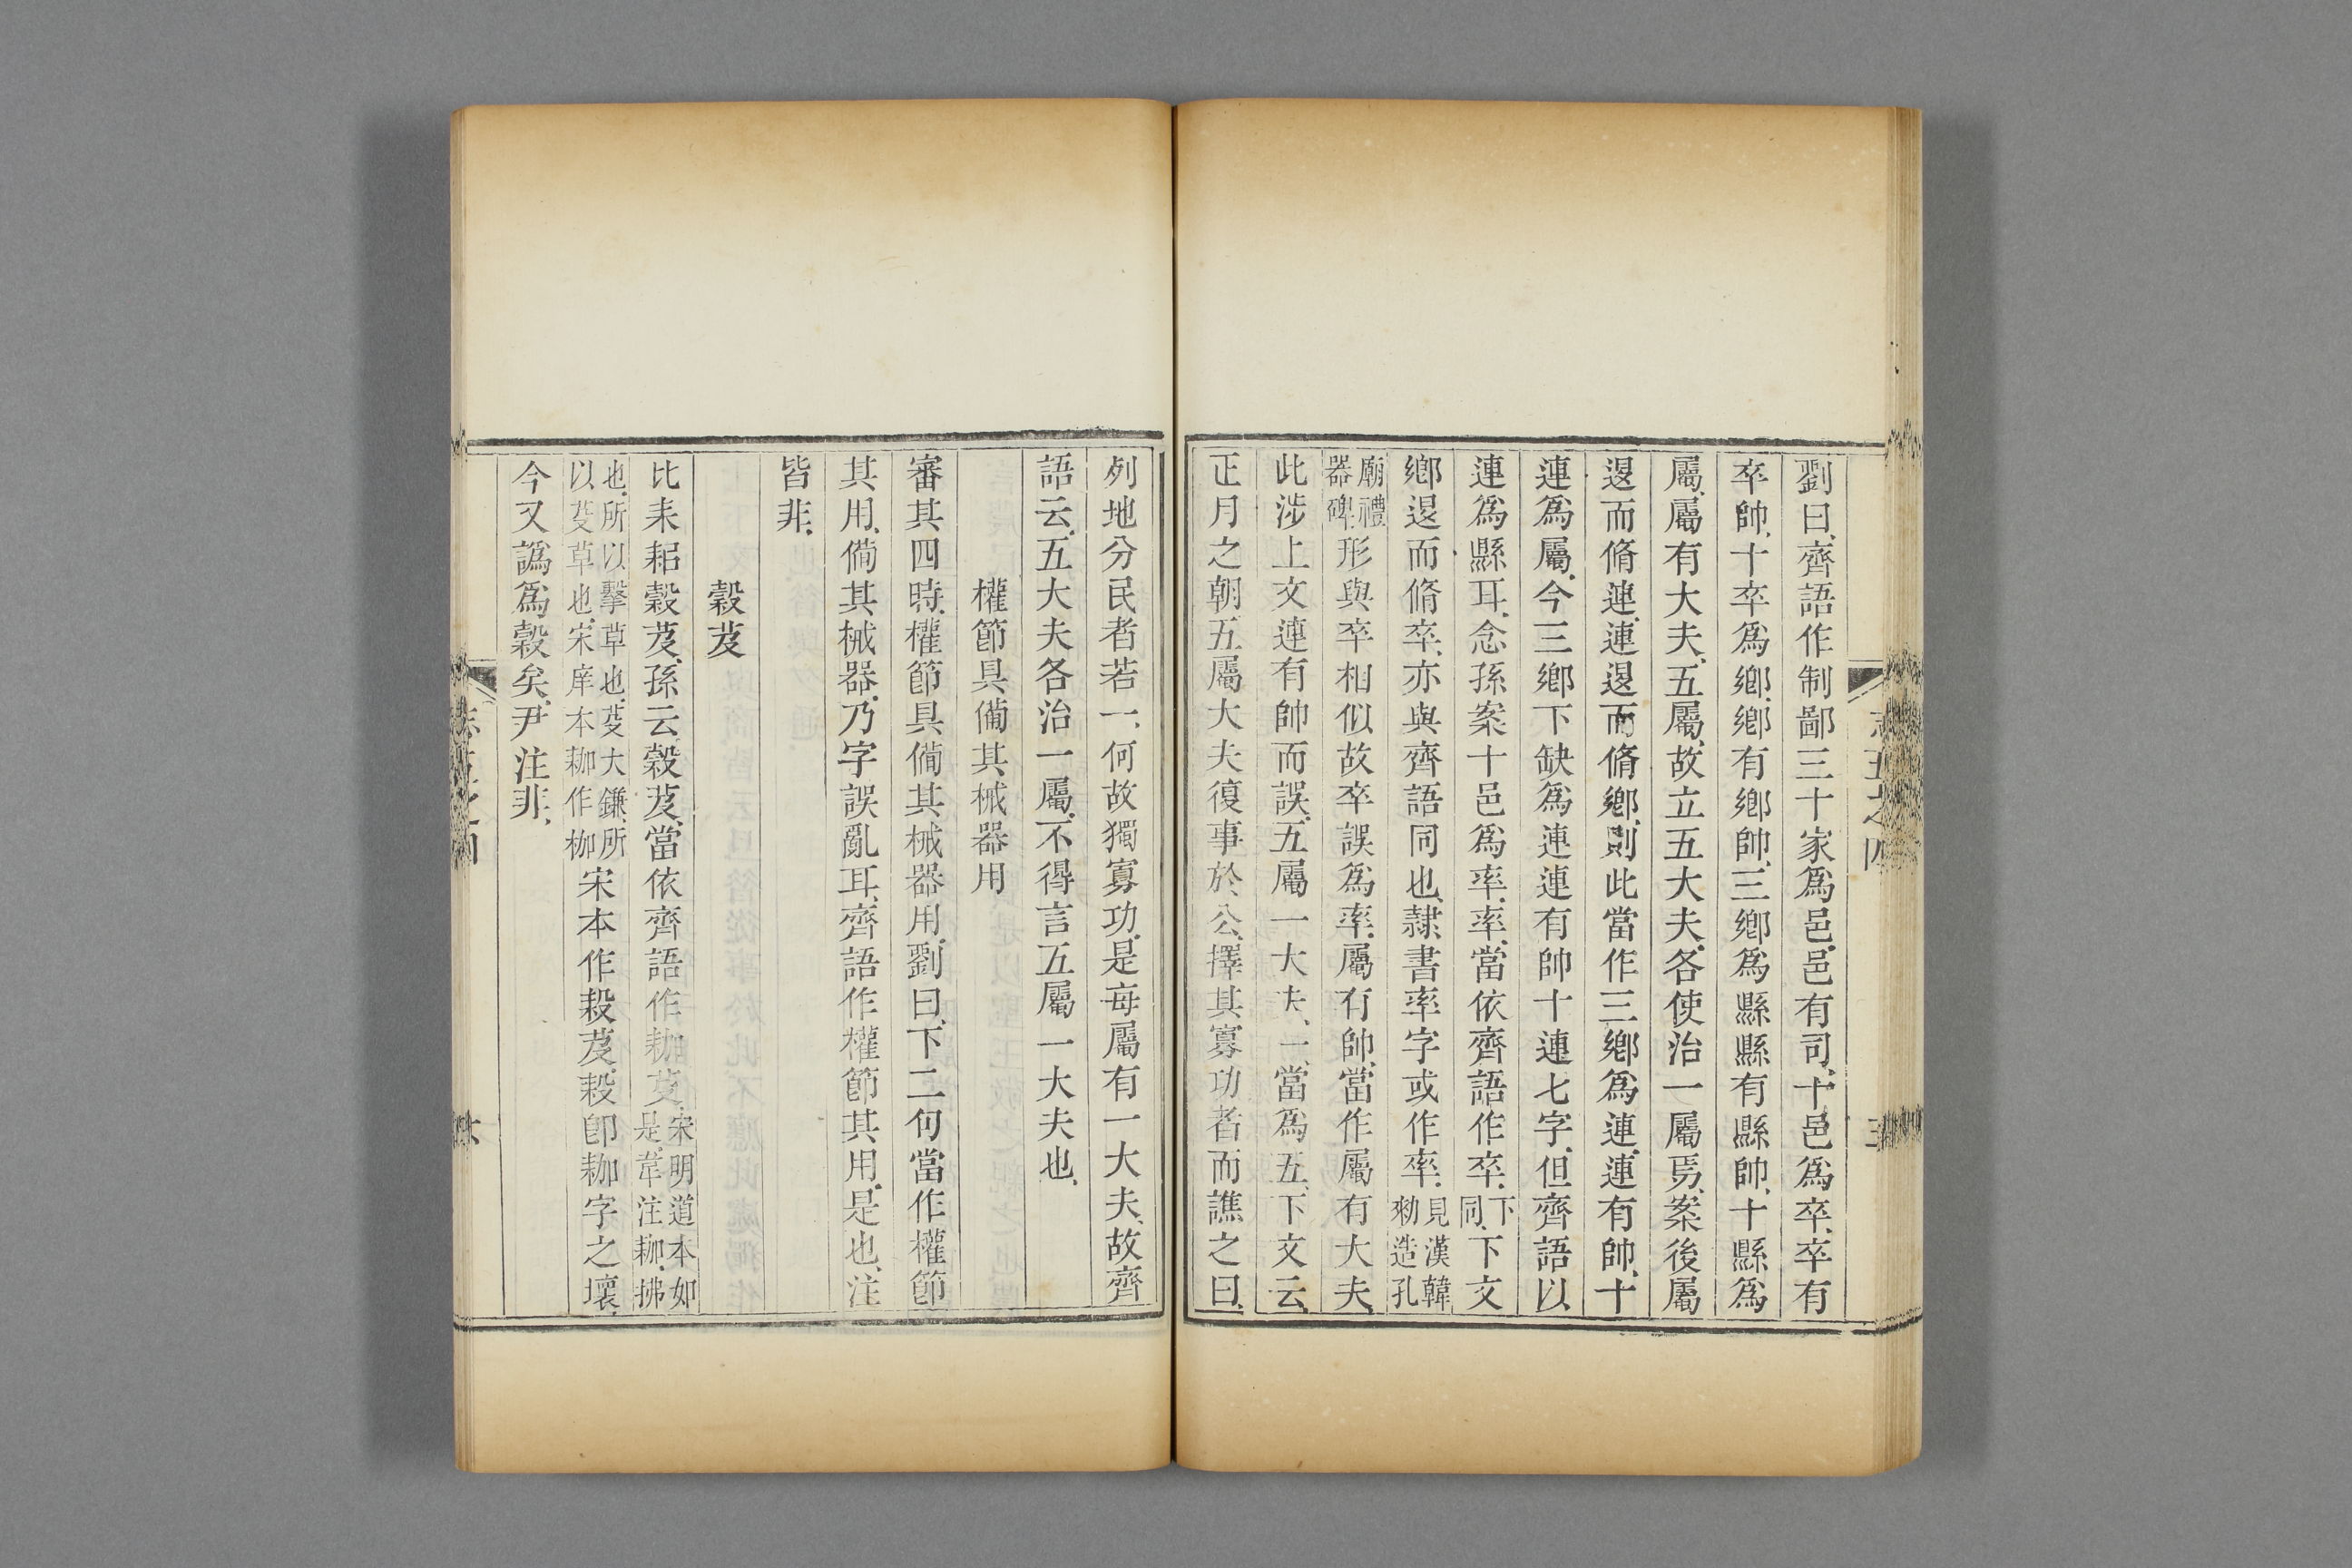 劉曰齊語作制鄙三十家爲邑邑有司十邑爲卒卒有
卒帥十卒爲鄉鄉有鄉帥三鄉爲縣縣有縣帥十縣爲
屬屬有大夫五屬故立五大夫各使治一屬焉案後屬
退而脩連連退而脩鄉則此當作三鄉爲連連有帥十
連爲屬今三鄉下缺爲連連有帥十連七字但齊語以
連爲縣耳念孫案十邑爲率率當依齊語作卒下同下文
鄉退而脩卒亦與齊語同也隸書率字或作率見漢韓勑造孔
廟禮器碑形與卒相似故卒誤爲率屬有帥當作屬有大夫
此涉上文連有帥而誤五屬一大夫一當爲五下文云
正月之朝五屬大夫復事於公擇其寡功者而譙之曰
列地分民者若一何故獨寡功是每屬有一大夫故齊
語云五大夫各治一屬不得言五屬一大夫也
權節具備其械器用
審其四時權節具備其械器用劉曰下二句當作權節
其用備其械器乃字誤亂耳齊語作權節其用是也注
皆非
穀芨
比耒耜穀芨孫云穀芨當依齊語作耞芟宋明道本如是韋注耞拂
也所以擊草也芟大鎌所以芟草也宋庠本耞作枷宋本作榖芨榖卽耞字之壞
今又譌爲穀矣尹注非
志五之四